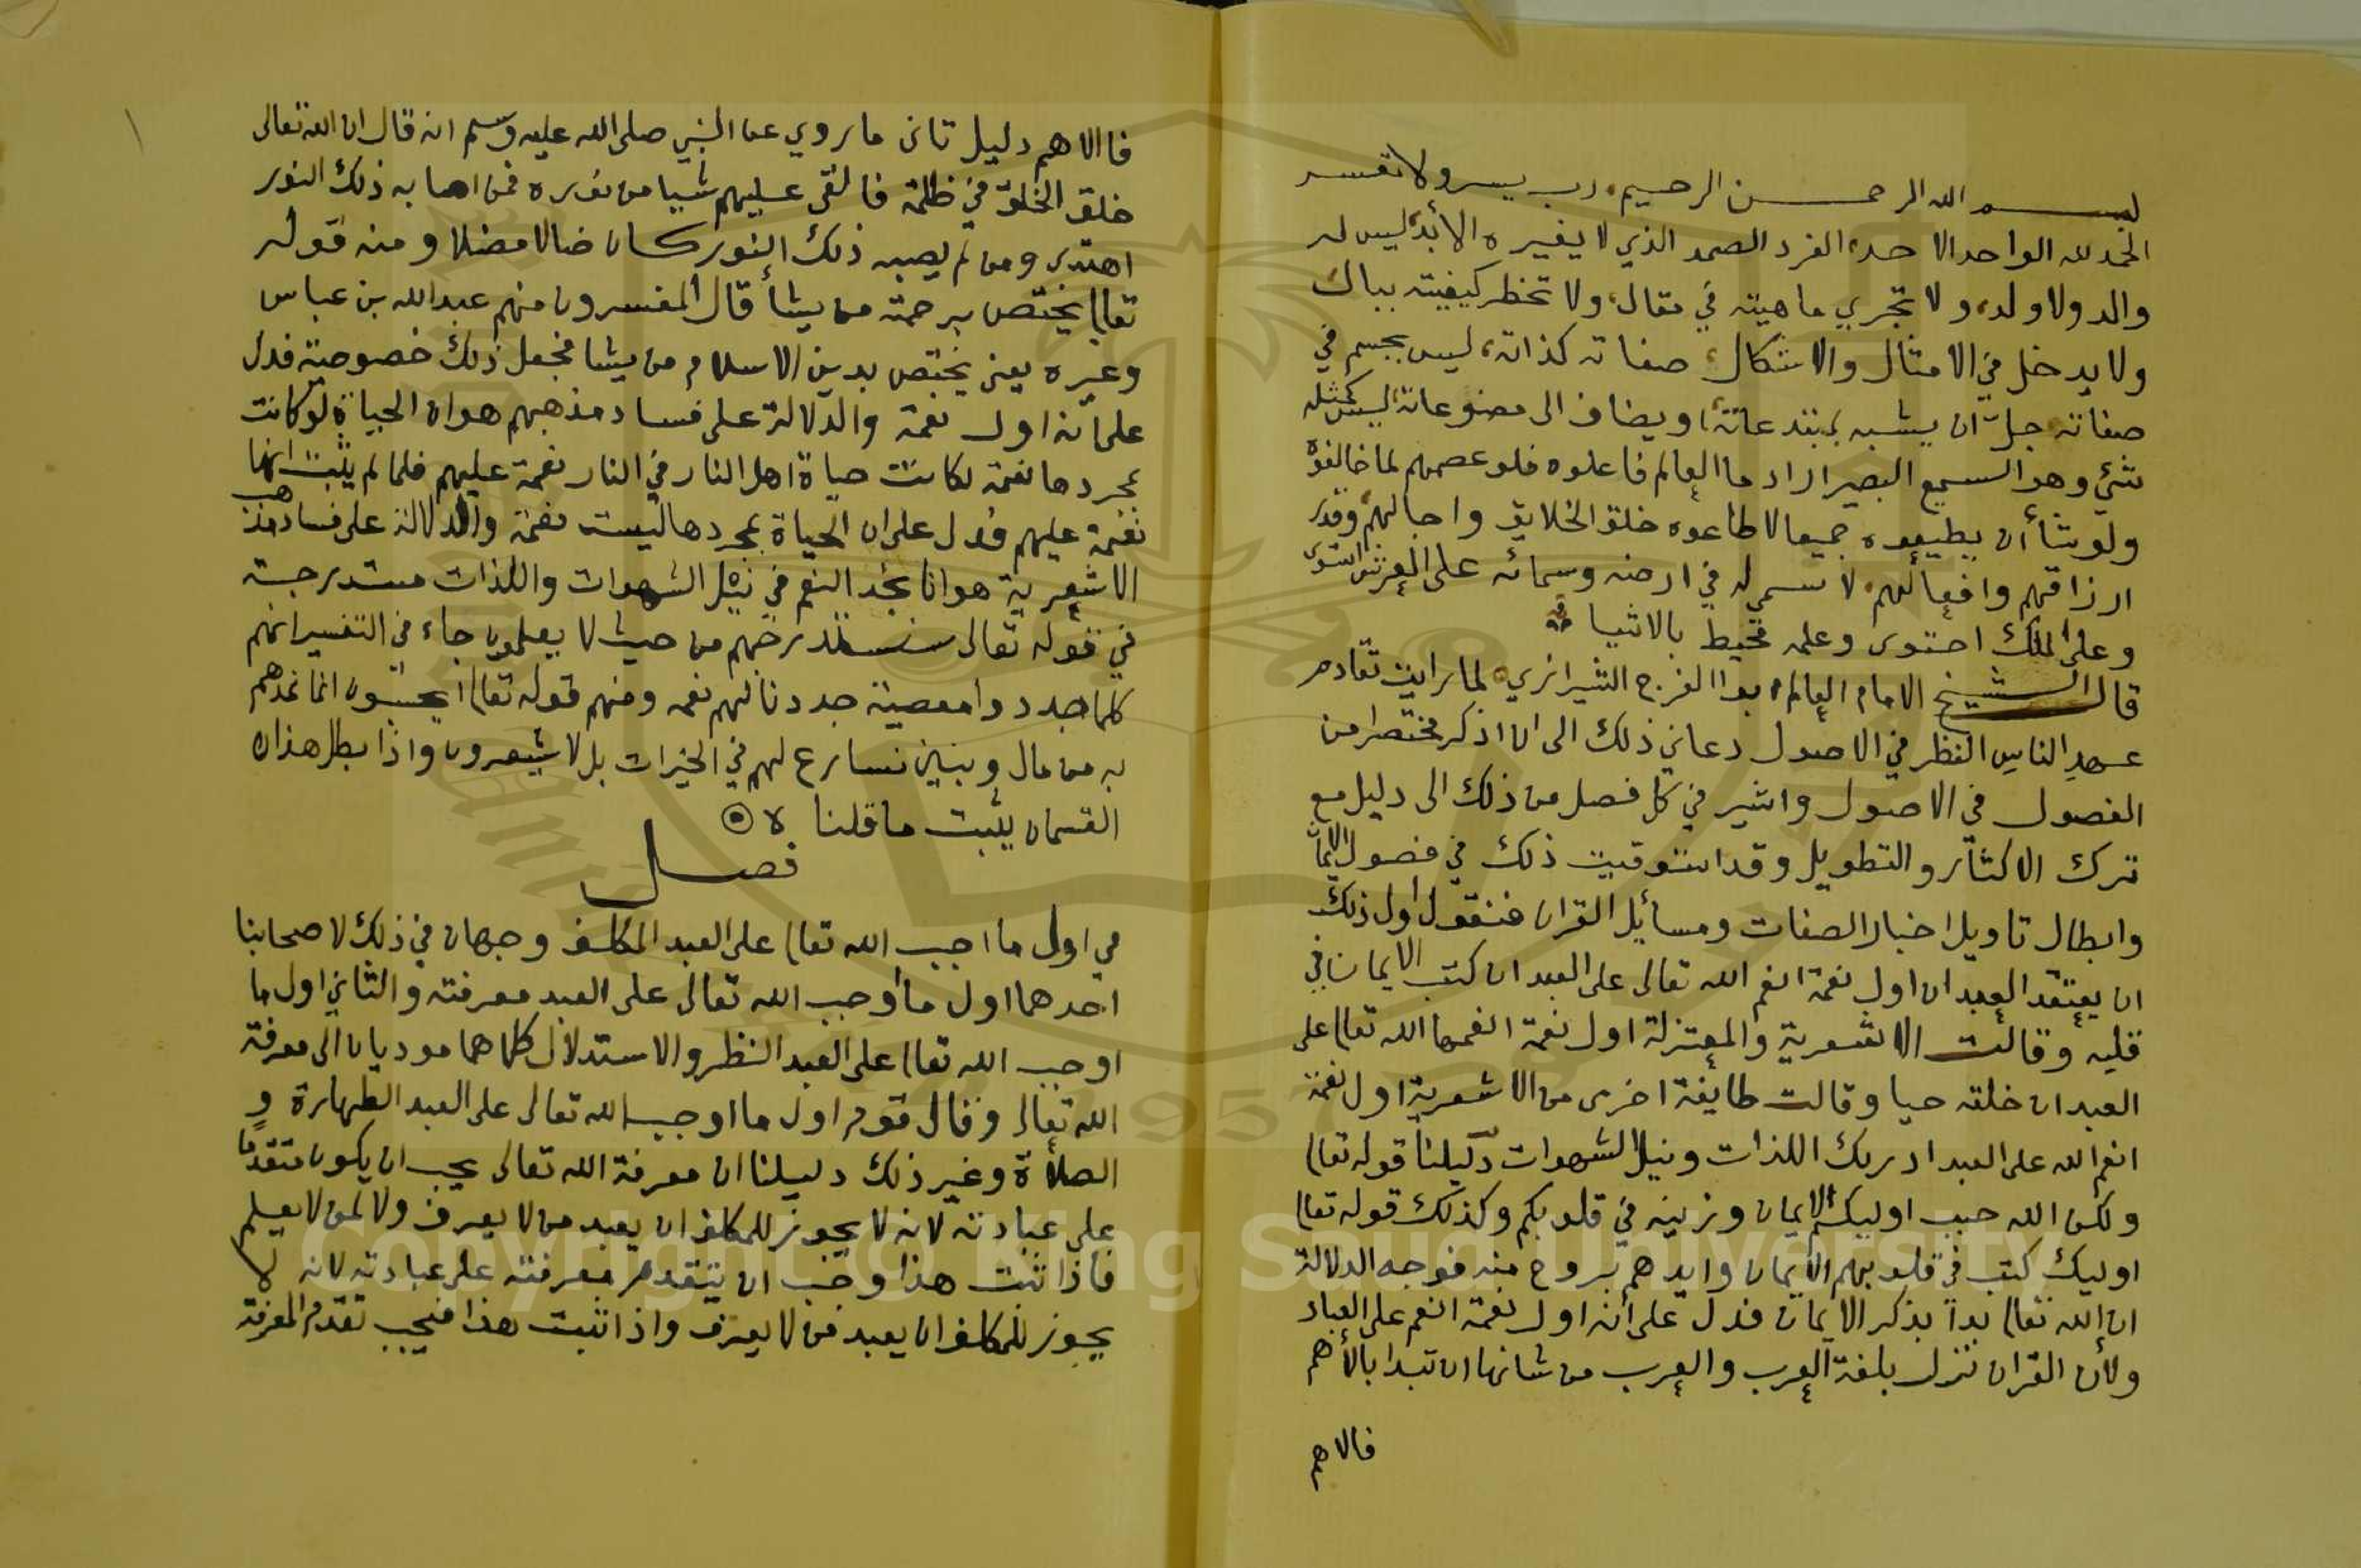 بسم الله الرحمن الرحيم رب يسر ولا تعسر
الحمد لله الواحد الاحد، الفرد الصمد الذي لا يغيره الأبد، ليس له
والد ولا ولد، ولا تجري ماهيته في مقال، ولا تخطر كيفيته ببال
ولا يدخل في الامثال والاشكال، صفاته كذاته، ليس بجسم في
صفاته جلّ ان يشبه بمبتدعاته، او يضاف الى مصنوعاته، ليس كمثله
شئي وهو السميع البصير اراد ما العالم فاعلوه فلو عصمهم لما خالفوه
ولو شأ أن يطيعوه جميعا لاطاعوه خلق الخلايق واجالهم، وقدر
ارزاقهم وافعالهم، لا سمي له في ارضه وسمائه على العرش استوى
وعلى الملك احتوى وعلمه محيط بالاشيا
قال الشيخ الامام العالم ابو الفرج الشيرازي، لما رايت تقادم
عهد الناس النظر في الاصول دعاني ذلك الى ان اذكر مختصرا من
الفصول في الاصول واشير في كل فصل من ذلك الى دليل مع
ترك الاكثار والتطويل وقد استوفيت ذلك في فصول الايمان
وابطال تاويل اخبار الصفات ومسائل القران فنقول اول ذلك
ان يعتقد العبد ان اول نعمة انعم الله تعالى على العبد ان كتب الايمان في
قلبه وقالت الاشعرية والمعتزلة اول نعمة انعمها الله تعالى على
العبد ان خلقه حيا وقالت طايفة اخرى من الاشعرية اول نعمة
انعم الله على العبد ادراك اللذات ونيل الشهوات دليلنا قوله تعالى
ولكن الله حبب اليكم الايمان وزينه في قلوبكم وكذلك قوله تعالى
اوليك كتب في قلوبهم الايمان وايدهم بروح منه فوجه الدلالة
ان الله تعالى بدأ بذكر الايمان فدل على أنه اول نعمة انعم على العباد
ولأن القران نزل بلغة العرب والعرب من شانها ان تبدا بالأهم
فالاهم
فاالاهم دليل ثاني ما روي عن النبي صلى الله عليه وسلم انه قال ان الله تعالى
خلق الخلق في ظلمة فالقى عليهم شيا من نوره فمن اصابه ذلك النور
اهتدى ومن لم يصبه ذلك النور كان ضالا مضلا ومنه قوله
تعالى يختص برحمته من يشأ قال المفسرون منهم عبدالله بن عباس
وغيره يعني يختص بدين الاسلام من يشا فجعل ذلك خصوصية فدل
على أنه اول نعمة والدلالة على فساد مذهبهم هو ان الحياة لو كانت
بمجردها نعمة لكانت حياة اهل النار في النار نعمة عليهم فلما لم يثبت انها
نعمة عليهم فدل على ان الحياة بمجردها ليست نعمة والدلالة على فساد مذهب
الاشعرية هو انا نجد النعم في نيل الشهوات واللذات مستدرجة
في قوله تعالى سنستدرجهم من حيث لا يعلمون جاء في التفسير انهم
كلما جددوا معصية جددنا لهم نعمه ومنهم قوله تعالى ايحسبون انما نمدهم
به من مال وبنين نسارع لهم في الخيرات بل لا يشعرون واذا بطل هذان
القسمان يثبت ما قلنا
فصل
في اول ما اجب الله تعالى على العبد المكلف وجهان في ذلك لاصحابنا
احدهما اول ما أوجب الله تعالى على العبد معرفته والثاني اول ما
اوجب الله تعالى على العبد النظر والاستدلال كلاهما موديان الى معرفة
الله تعالى وقال قوم اول ما اوجب الله تعالى على العبد الطهارة و
الصلاة وغير ذلك دليلنا ان معرفة الله تعالى يجب ان يكون متقدما
على عبادته لانه لا يجوز للمكلف ان يعبد من لا يعرف ولا لمن لا يعلم
فاذا ثبت هذا وجب ان يتقدم معرفته على عبادته لانه لا
يجوز للمكلف ان يعبد من لا يعرف واذا ثبت هذا فيجب تقدم المعرفة
1957
Copyright © King Saud University